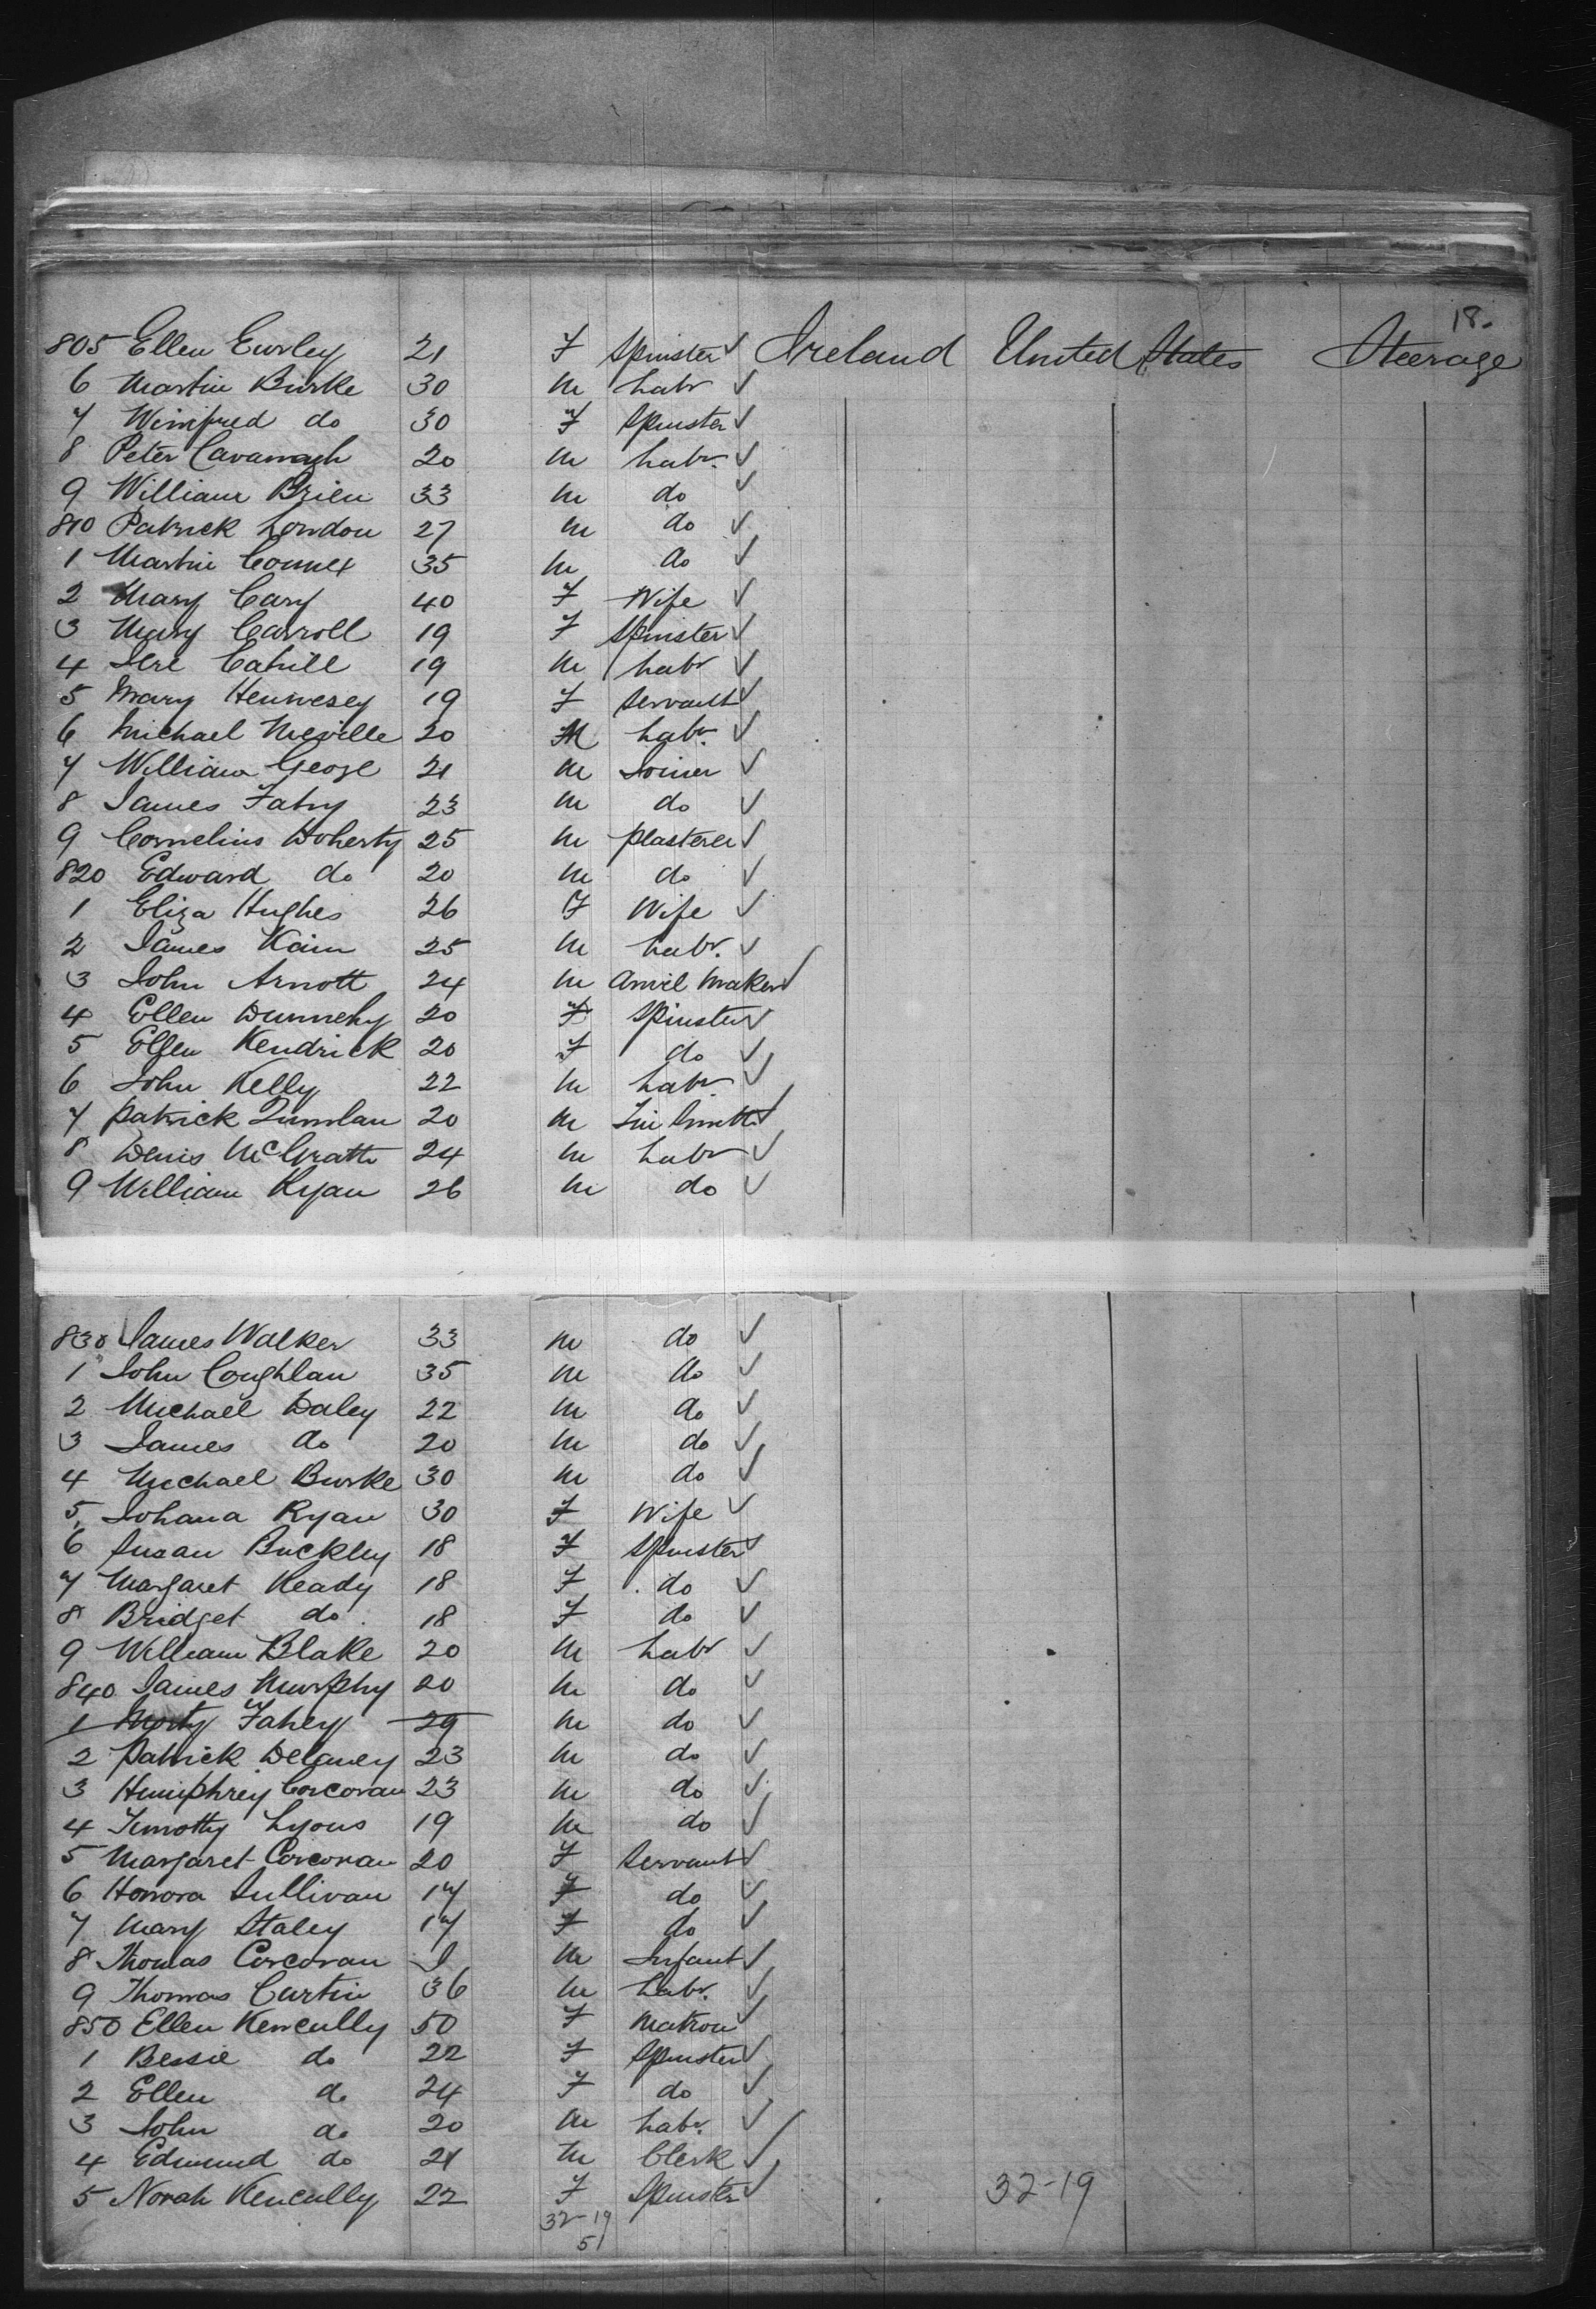 18.
805 Ellen Eurley 21 F Spinster ✓ Ireland United States Steerage
6 Martin Burke 30 M Labr ✓
7 Winifred do 30 F Spinster ✓
8 Peter Cavanagh 20 M Labr. ✓
9 William Brien 33 M do ✓
810 Patrick London 27 M do ✓
1 Martin 35 M do ✓
2 Mary Cary 40 F Wife ✓
3 Mary Carroll 19 F Spinster ✓
4 Jere Cahill 19 M Labr ✓
5 Mary Hennesey 19 F Servant ✓
6 Michael Neville 20 M Labr. ✓
7 William 21 M Joiner ✓
8 James Fahy 23 M do ✓
9 Cornelius Doherty 25 M plasterer ✓
820 Edward do 20 M do ✓
1 Eliza Hughes 26 F Wife ✓
2 James Kain 25 M Labr. ✓
3 John Arnott 24 M Anvil Maker ✓
4 Ellen Dunnehy 20 F Spinster ✓
5 Ellen Kendrick 20 F do ✓
6 John Kelly 22 M Labr. ✓
7 Patrick Quinlan 20 M Tin Smith ✓
8 Denis McGrath 24 M Labr ✓
9 William Ryan 26 M do ✓
830 James Walker 33 M do ✓
1 John Coughlan 35 M do ✓
2 Michael Daley 22 M do ✓
3 James do 20 M do ✓
4 Michael Burke 30 M do ✓
5 Johana Ryan 30 F Wife ✓
6 Susan Buckley 18 F Spinster ✓
7 Margaret Keady 18 F do ✓
8 Bridget do 18 F do ✓
9 William Blake 20 M Labr ✓
840 James Murphy 20 M do ✓
1 Morty Fahey 29 M do ✓
2 Patrick Delaney 23 M do ✓
3 Humphrey Corcoran 23 M do ✓
4 Timothy Lyons 19 M do ✓
5 Margaret Corcoran 20 F Servant ✓
6 Honora Sullivan 17 F do ✓
7 Mary Staley 17 F do ✓
8 Thomas Corcoran I M Infant ✓
9 Thomas Curtin 36 M Labr. ✓
850 Ellen Kencully 50 F Matron ✓
1 Bessie do 22 F Spinster ✓
2 Ellen do 24 F do ✓
3 John do 20 M Labr. ✓
4 Edmund do 21 M Clerk ✓
5 Norah Kencully 22 F Spinster ✓ 32-19
32-19
51